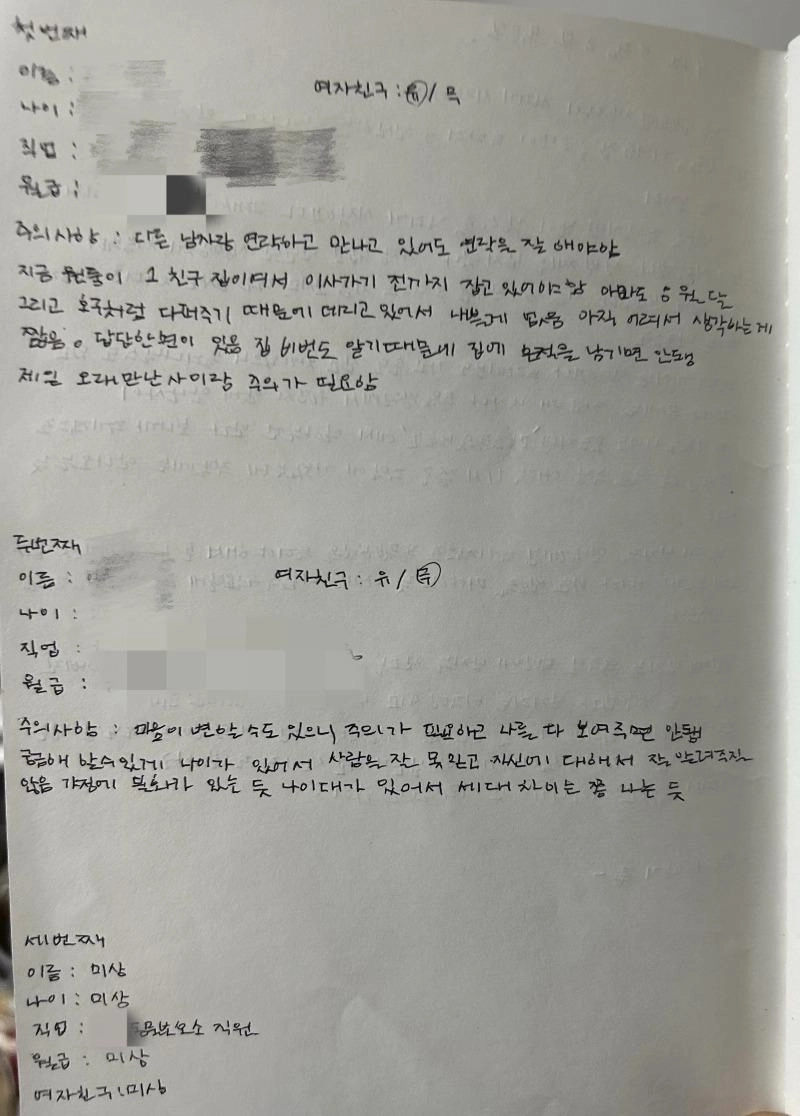 첫번째
이름 :
여자친구 : 유 / 무
나이 :
직업 :
월급 :
주의사항 : 다른 남자랑 연락하고 만나고 있어도 연락을 잘 해야함
지금 원룸이 그 친구 집이여서 이사가기 전까지 잡고 있어야함 아마도 5월달
그리고 호구처럼 다퍼주기 때문에 데리고 있어서 나쁠게 없음 아직 어려서 생각하는게
짧음. 답답한편이 있음 집 비번도 알기때문에 집에 흔적을 남기면 안됨
제일 오래만난사이랑 주의가 필요함
두번째
이름 :
여자친구 : 유 / 무
나이 :
직업 :
월급 :
주의사항 : 마음이 변할수도 있으니 주의가 필요하고 나를 다 보여주면 안됨
궁금해 할수있게 나이가 있어서 사람을 잘 못믿고 자신에 대해서 잘 알려주지
않음 가정에 불화가 있는 듯 나이대가 있어서 세대차이는 쫌 나는 듯
세번째
이름 : 미상
나이 : 미상
직업 : 직원
월급 : 미상
여자친구 : 미상